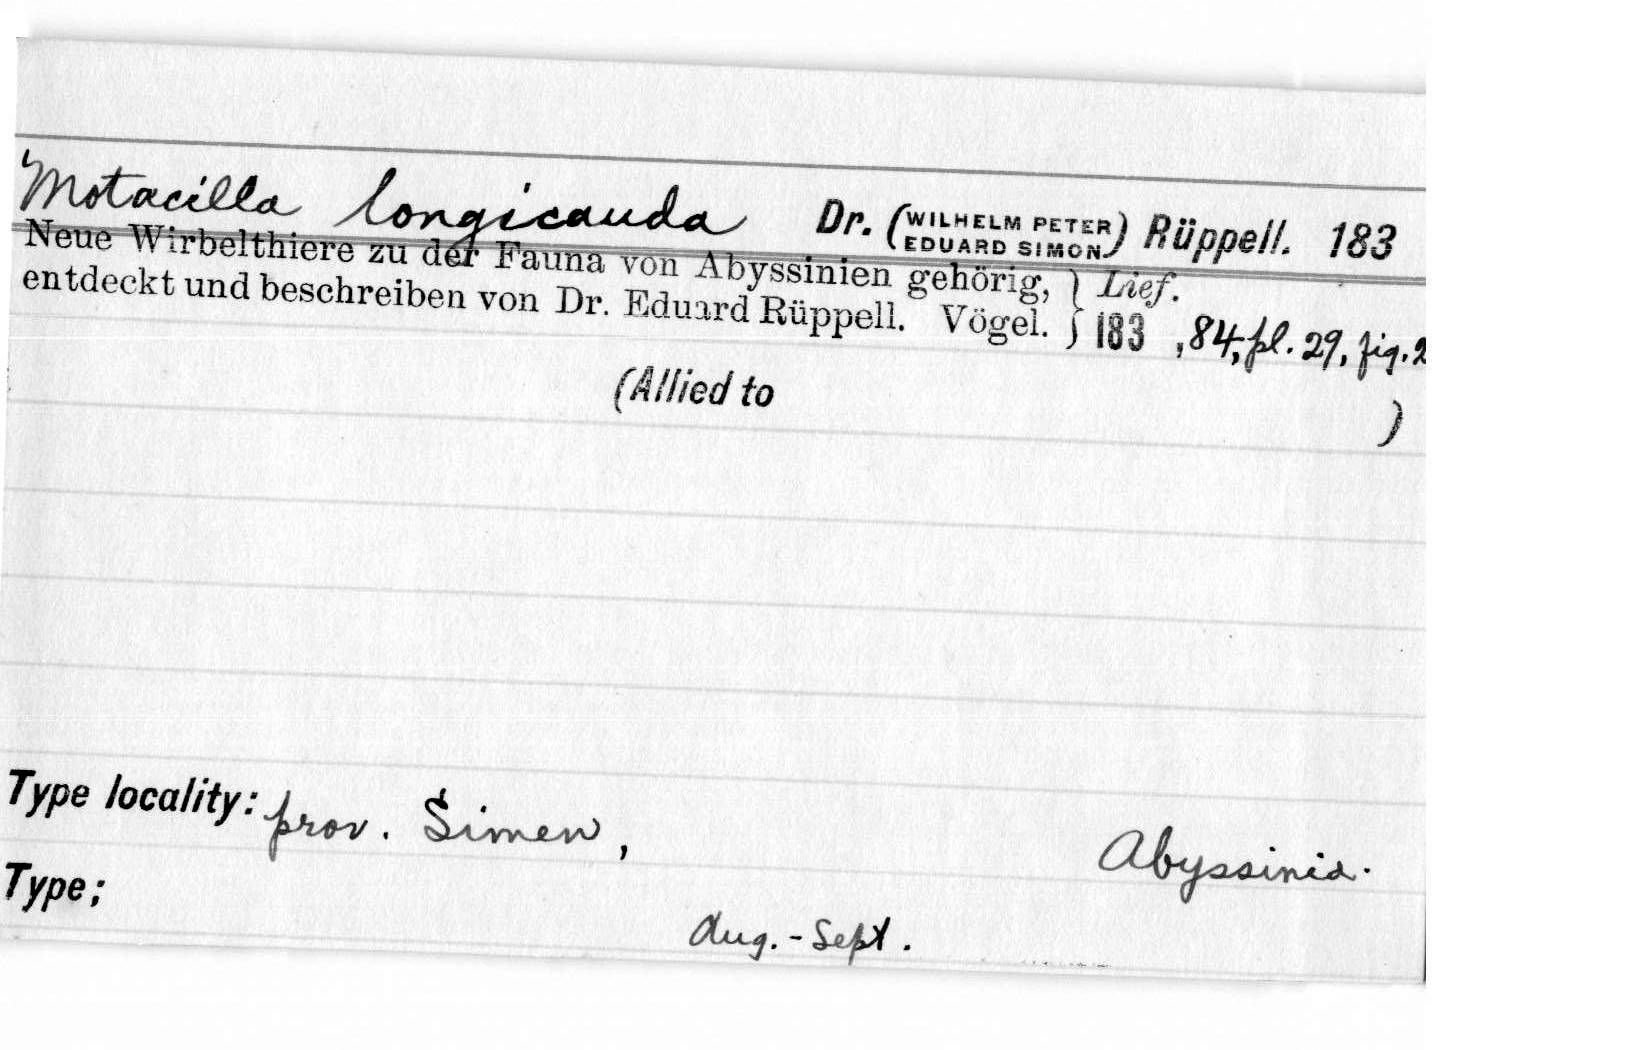 Motacilla longicauda Dr. (WILHELM PETER EDUARD SIMON) Rüppell. 183
Neue Wirbelthiere zu der Fauna von Abyssinien gehörig, } Lief.
entdeckt und beschreiben von Dr. Eduard Rüppell. Vögel. } 183 , 84, pl. 29, fig. 2
(Allied to )
Type locality: prov. Simen, Abyssinia.
Type;
Aug. - Sept.